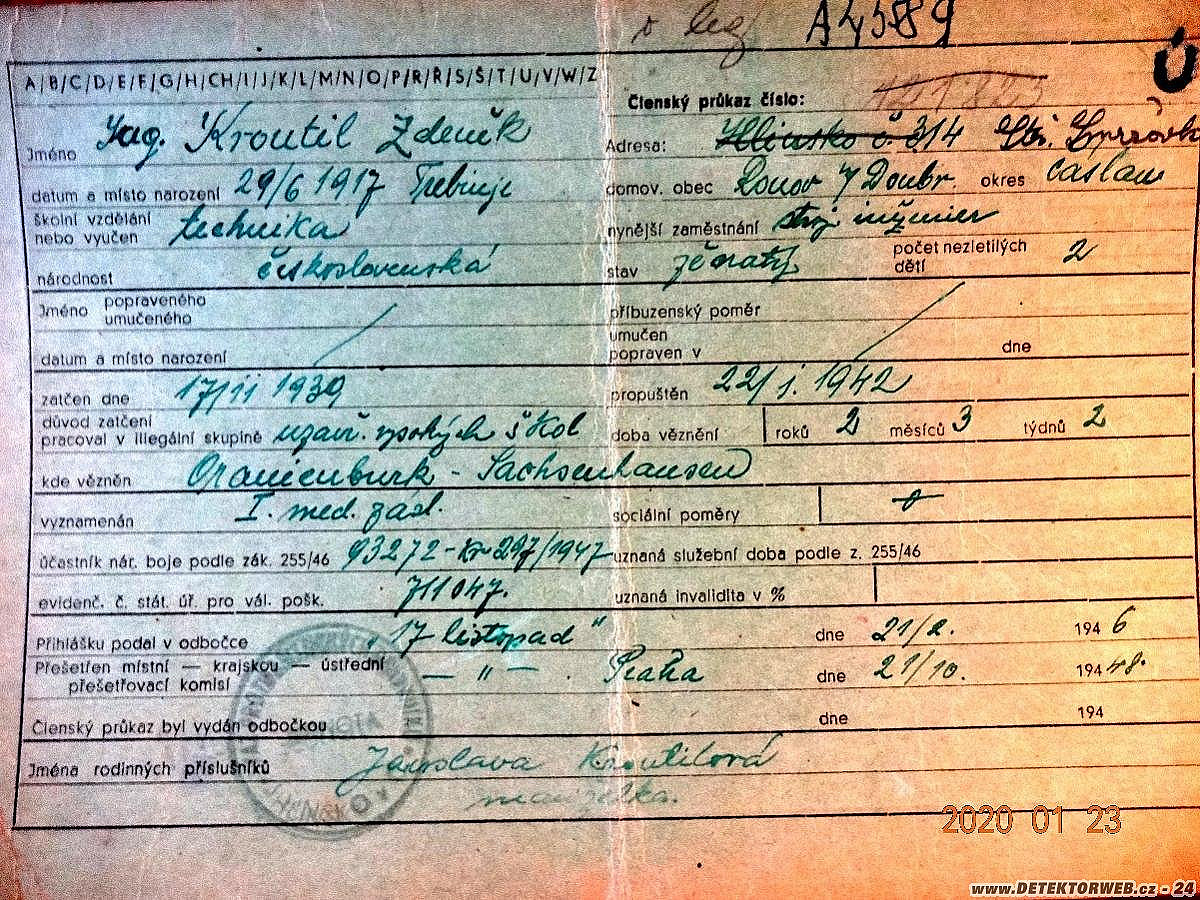 A4589
A/B/C/D/E/F/G/H/CH/I/J/K/L/M/N/O/P/R/Ř/S/Š/T/U/V/W/Z
Členský průkaz číslo: 121823
Jméno Ing. Kroutil Zdeněk Adresa: Hlinsko č. 314
datum a místo narození 29/6 1917 Trebinje domov. obec Ronov n/Doubr. okres Čáslav
školní vzdělání nebo vyučen technika nynější zaměstnání stroj. inženier
národnost československá stav ženatý počet nezletilých dětí 2
Jméno popraveného umučeného příbuzenský poměr
datum a místo narození umučen popraven v dne
zatčen dne 17/11 1939 propuštěn 22/1. 1942
důvod zatčení pracoval v illegální skupině uzavř. vysokých škol doba věznění roků 2 měsíců 3 týdnů 2
kde vězněn Oranienburk - Sachsenhausen
vyznamenán I. med. zásl. sociální poměry
účastník nár. boje podle zák. 255/46 93272-Kr-297/1947 uznaná služební doba podle z. 255/46
evidenč. č. stát. úř. pro vál. pošk. 711047. uznaná invalidita v %
Přihlášku podal v odbočce „17 listopad" dne 21/2. 194 6
Přešetřen místní — krajskou — ústřední přešetřovací komisí — " — . Praha dne 21/10. 194 48.
Členský průkaz byl vydán odbočkou dne 194
Jména rodinných příslušníků Jaroslava Kroutilová
manželka.
2020 01 23
www.DETEKTORWEB.cz - 24